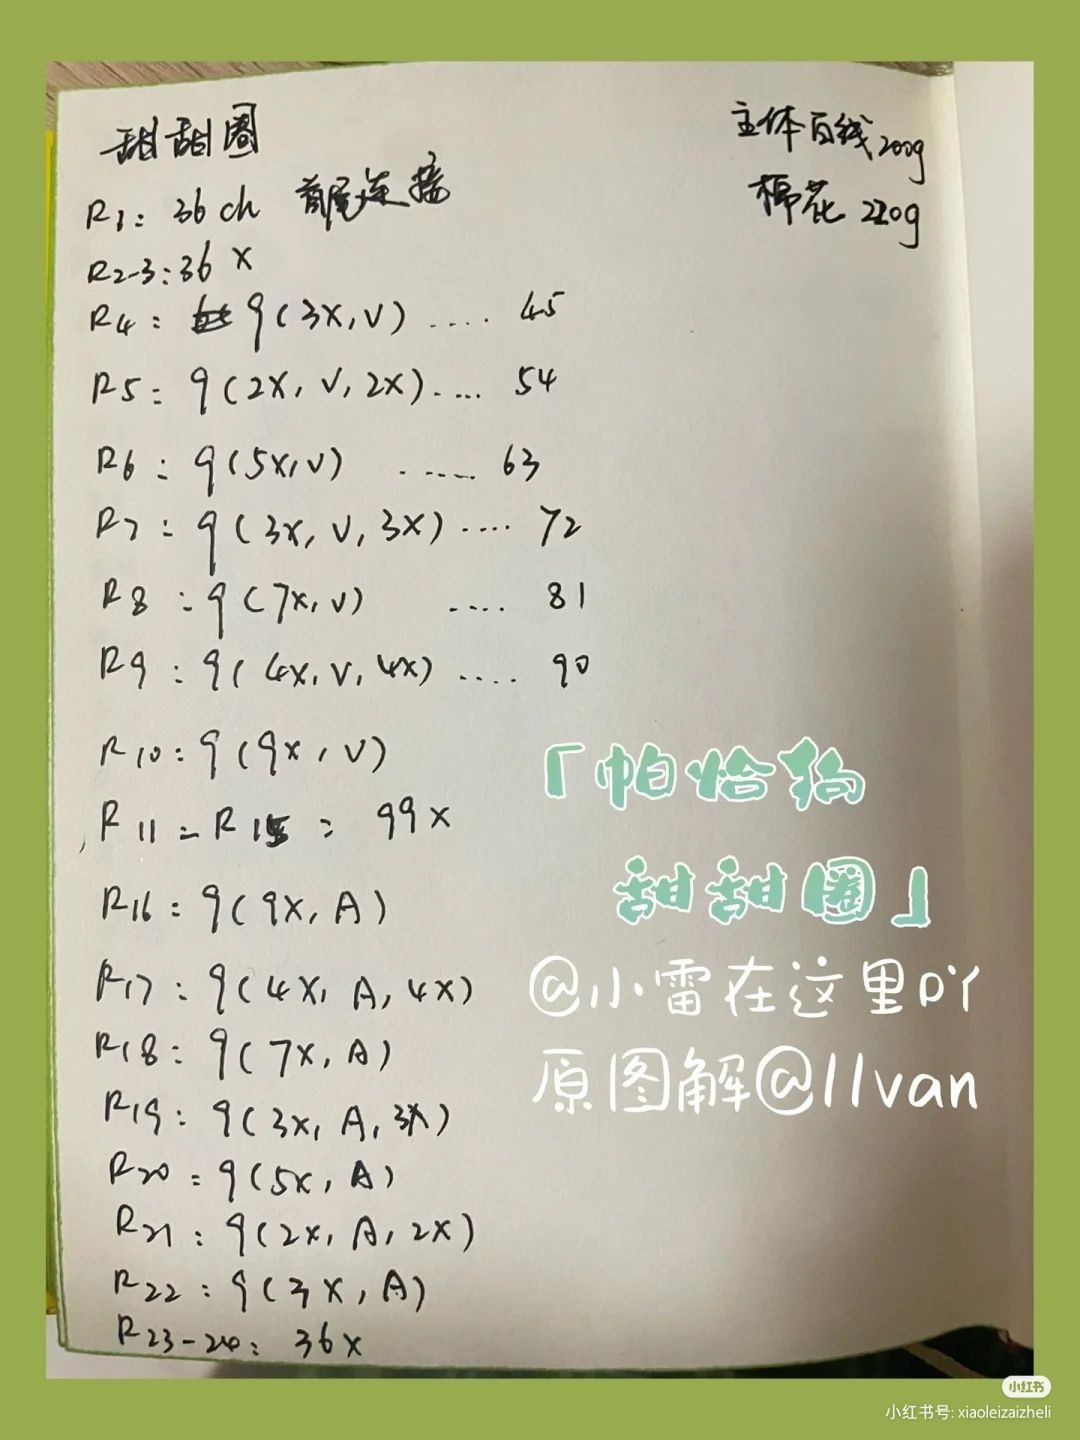 甜甜圈
主体白线200g
R1: 36 ch 首尾连接
棉花 220g
R2-3: 36 X
R4: 9(3X, V) .... 45
R5: 9(2X, V, 2X) .... 54
R6: 9(5X, V) ..... 63
R7: 9(3X, V, 3X) .... 72
R8: 9(7X, V) .... 81
R9: 9(4X, V, 4X) .... 90
R10: 9(9X, V)
R11-R15: 99X
R16: 9(9X, A)
R17: 9(4X, A, 4X)
R18: 9(7X, A)
R19: 9(3X, A, 3X)
R20: 9(5X, A)
R21: 9(2X, A, 2X)
R22: 9(3X, A)
R23-24: 36X
「帕恰狗
甜甜圈」
@小雷在这里吖
原图解@llvan
小红书
小红书号: xiaoleizaizheli